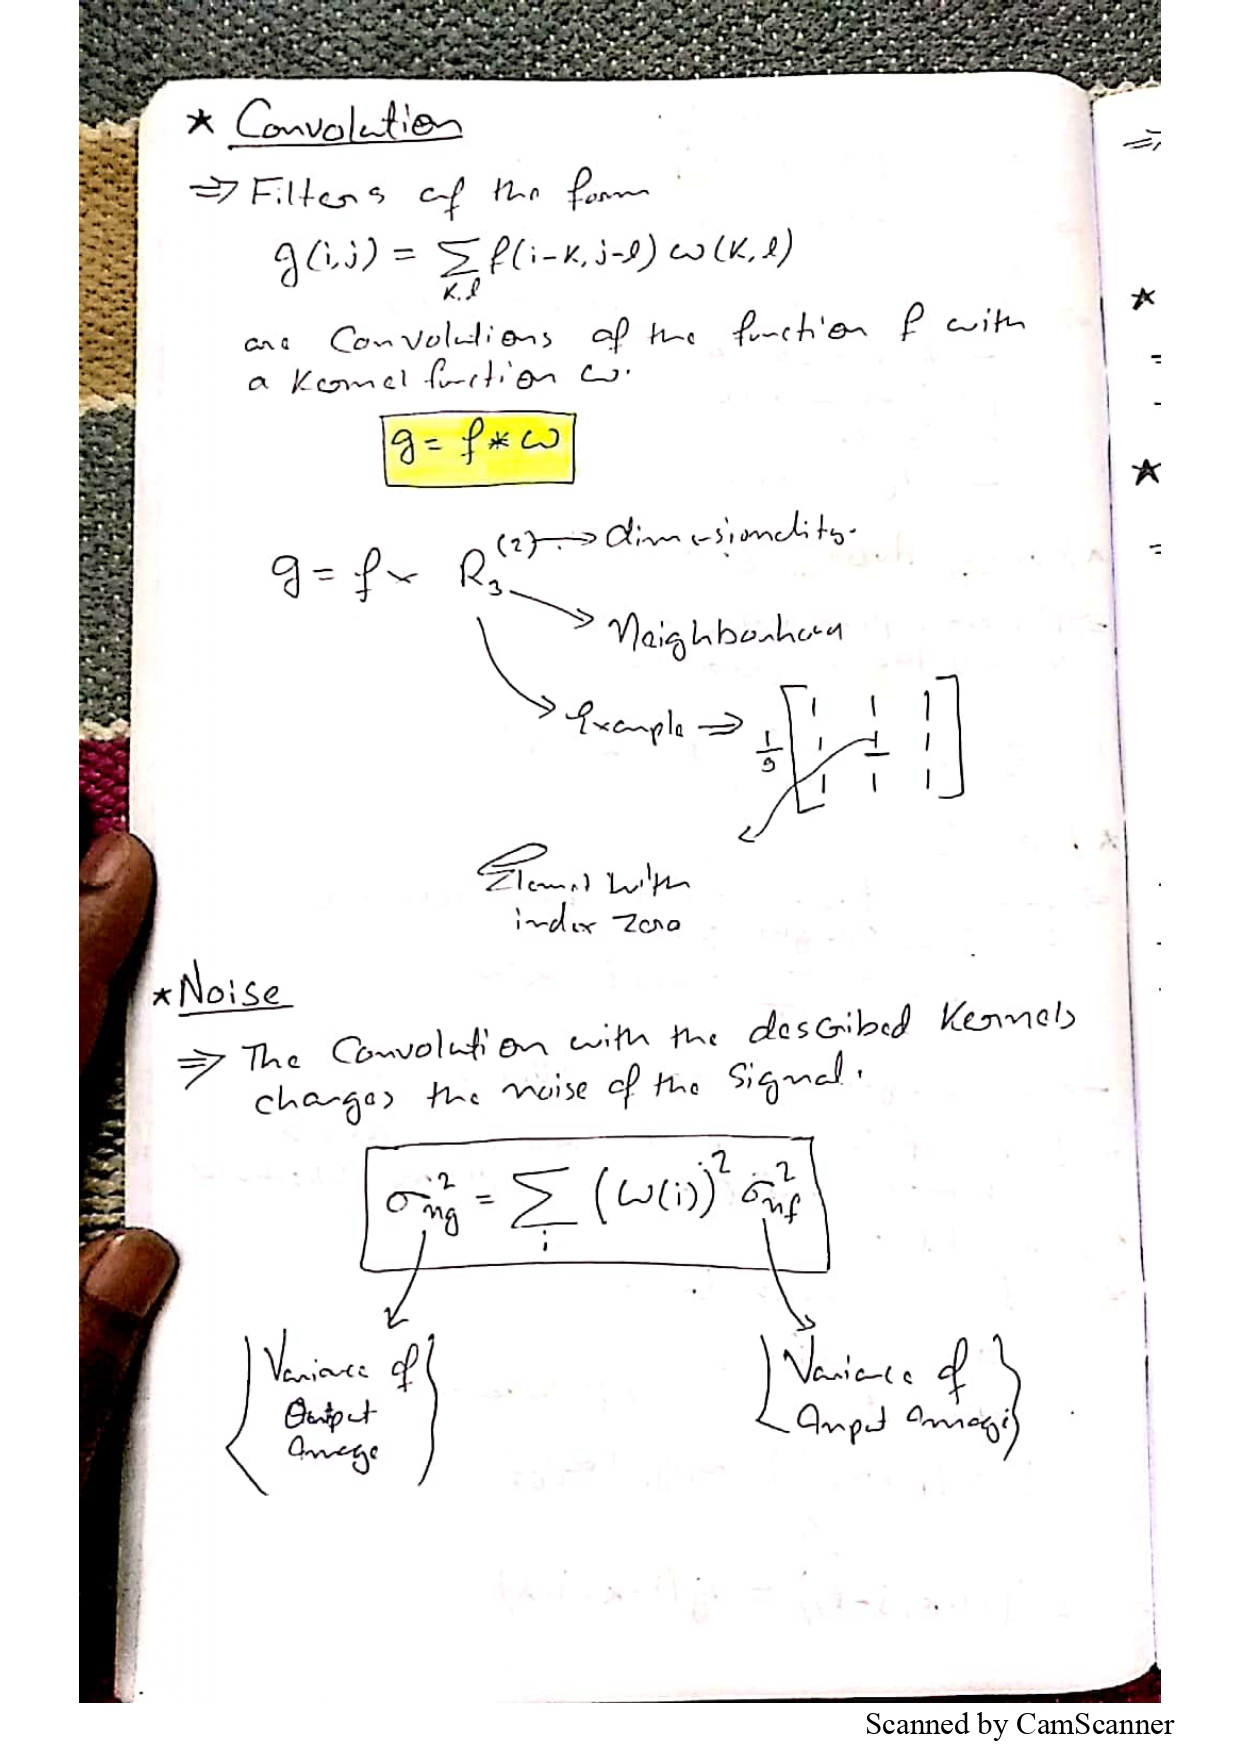 ★ Convolution
⇒ Filters of the form
g(i,j) = Σ f(i-k, j-l) ω(k, l)
k,l
are Convolutions of the function f with
a Kernel function ω.
g = f * ω
g = f * R₃⁽²⁾ → dimensionality.
→ Neighborhood
→ Example ⇒ 1/9 [1 1 1
1 1 1
1 1 1]
Element with
index zero
★ Noise
⇒ The Convolution with the described Kernels
changes the noise of the signal.
σ²ng = Σ (ω(i))² σ²nf
i
{Variance of
Output
Image}
{Variance of
Input Image}
⇒
★
★
Scanned by CamScanner